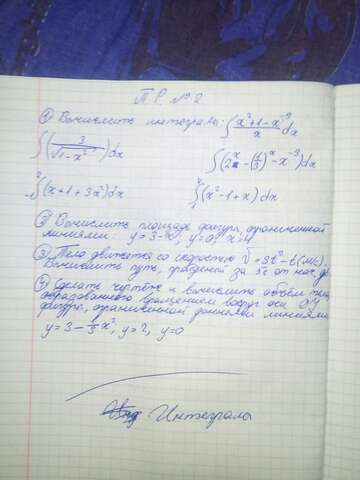 П.Р. №2
① Вычислить интегралы: ∫ (x²+1-x⁻³)/x dx
∫ (3/√(1-x²)) dx ∫ (2ˣ - (1/3)ˣ - x⁻³) dx
∫ (x+1+3x²) dx ∫ (x²-1+x) dx
② Вычислить площадь фигуры, ограниченной
линиями: y=0, x=1
③ Тело движется со скоростью v = 3t²-t (м/с).
Вычислить путь, за 5с от нач. дв.
④ Сделать чертёж и вычислить объём тела,
образованного вращением вокруг оси OY
фигуры, ограниченной данными линиями
y=3-⅓x², y=2, y=0
Интегралы